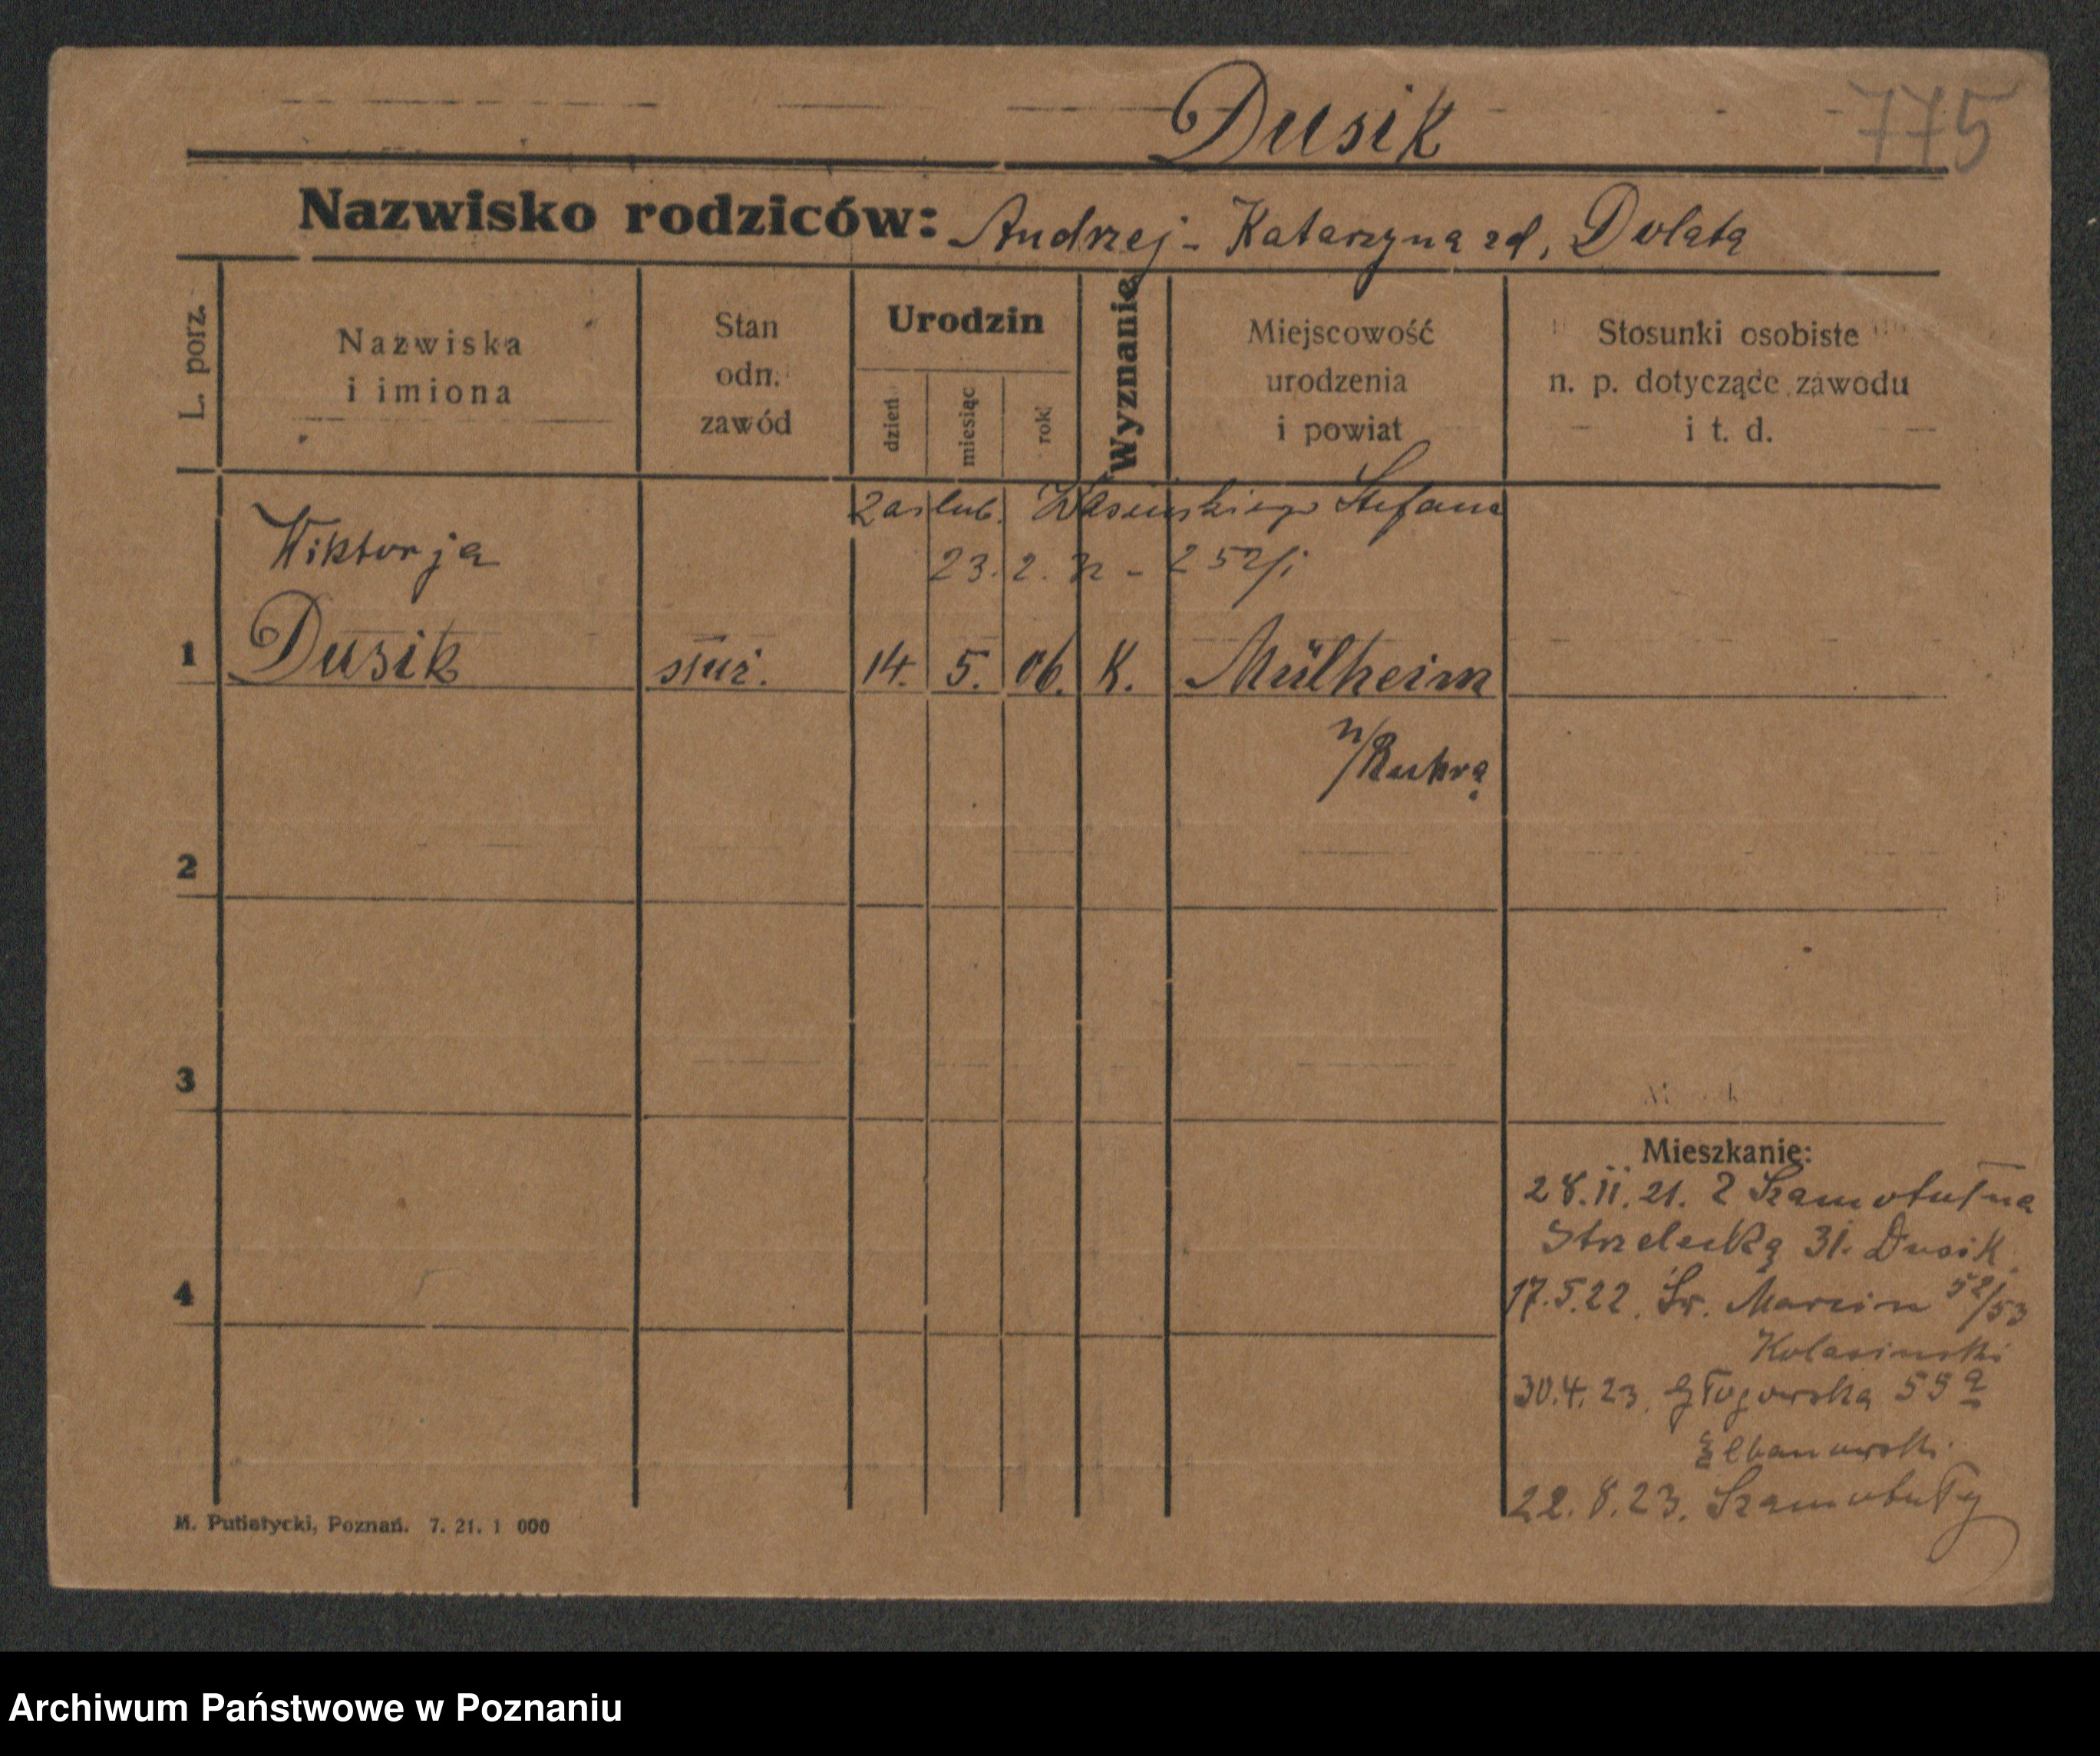 Dusik
775
Nazwisko rodziców: Andrzej - Katarzyna zd. Dolata
L. porz.
Nazwiska
i imiona
Stan
odn.
zawód
Urodzin
dzień
miesiąc
rok
Wyznanie
Miejscowość
urodzenia
i powiat
Stosunki osobiste
n. p. dotyczące zawodu
i t. d.
zaślub. Stefana
23. 2. -
Wiktorja
1 Dusik służ. 14. 5. 06. K. Mülheim
n/Ruhrą
2
3
4
Mieszkanie:
28.II.21. Z Szamotuł na
Strzelecką 31. Dusik
17.5.22. Św. Marcin 52/53
Kolasinski
30.4.23. Głogowska 55 a
22.8.23. Szamotuły
M. Putiatycki, Poznań. 7. 21. 1 000
Archiwum Państwowe w Poznaniu